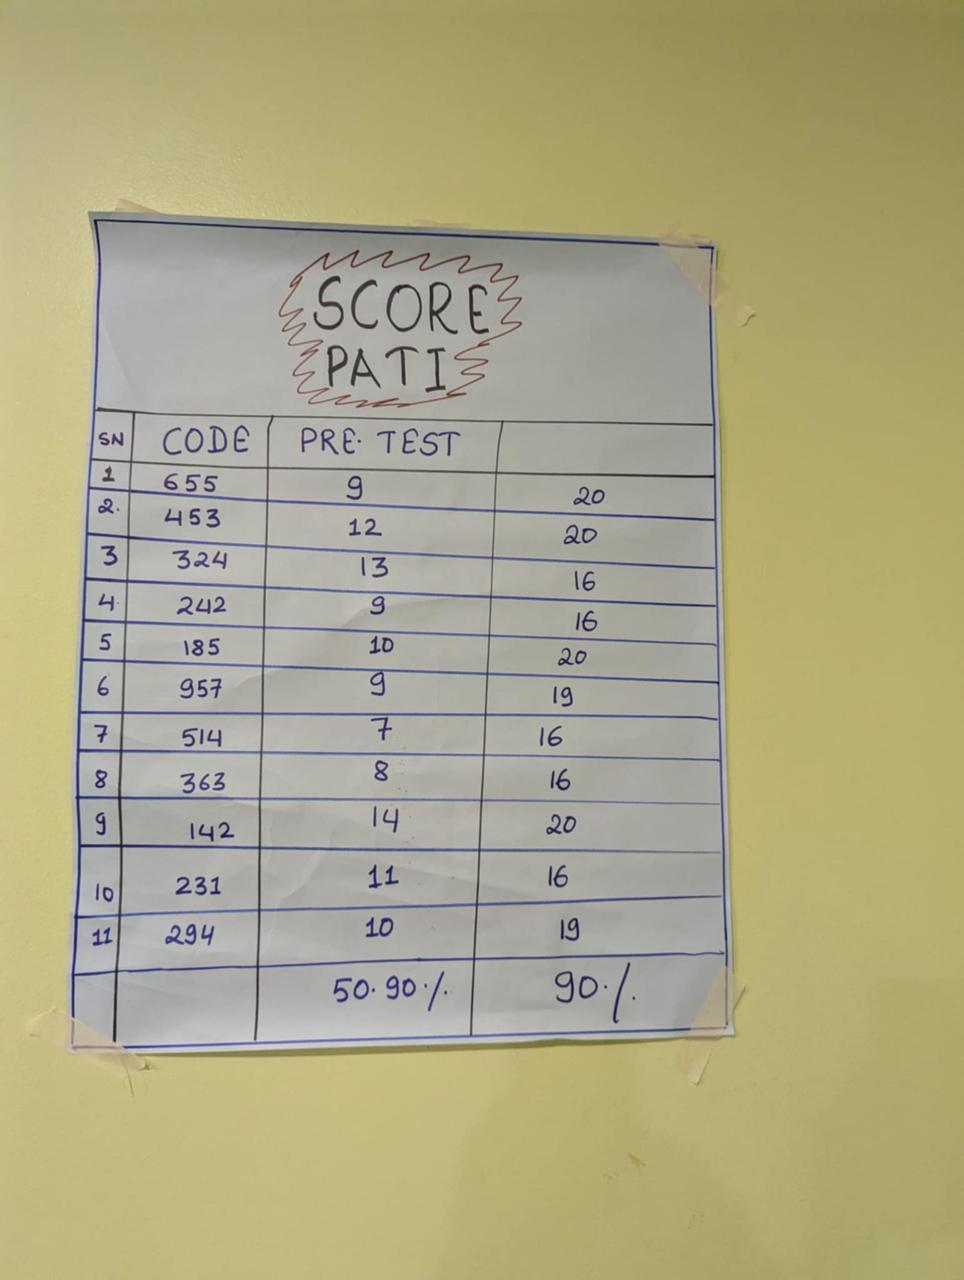 SCORE
PATI
SN CODE PRE. TEST
1 655 9 20
2. 453 12 20
3 324 13 16
4. 242 9 16
5 185 10 20
6 957 9 19
7 514 7 16
8 363 8 16
9 142 14 20
10 231 11 16
11 294 10 19
50.90% 90%